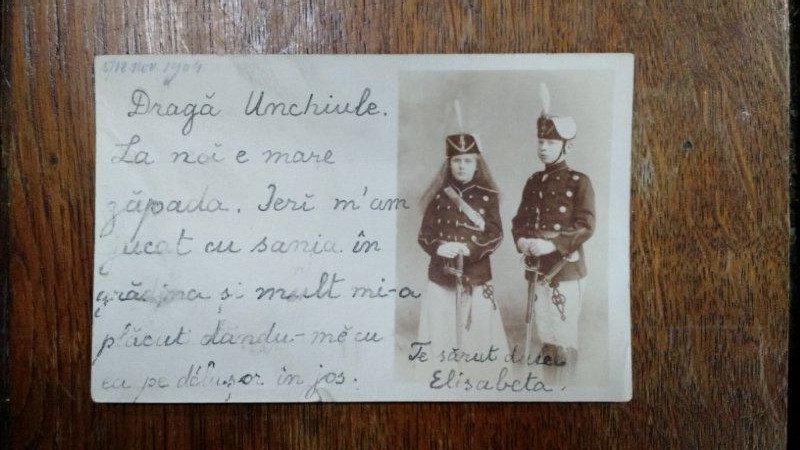 5/18 Nov. 1904
Dragă Unchiule.
La noĭ e mare
zăpada. Ierĭ m'am
jucat cu sania în
grădina și mult mi-a
plăcut dându-mĕ cu
ea pe dâlușor în jos.
Te sărut
Elisabeta.